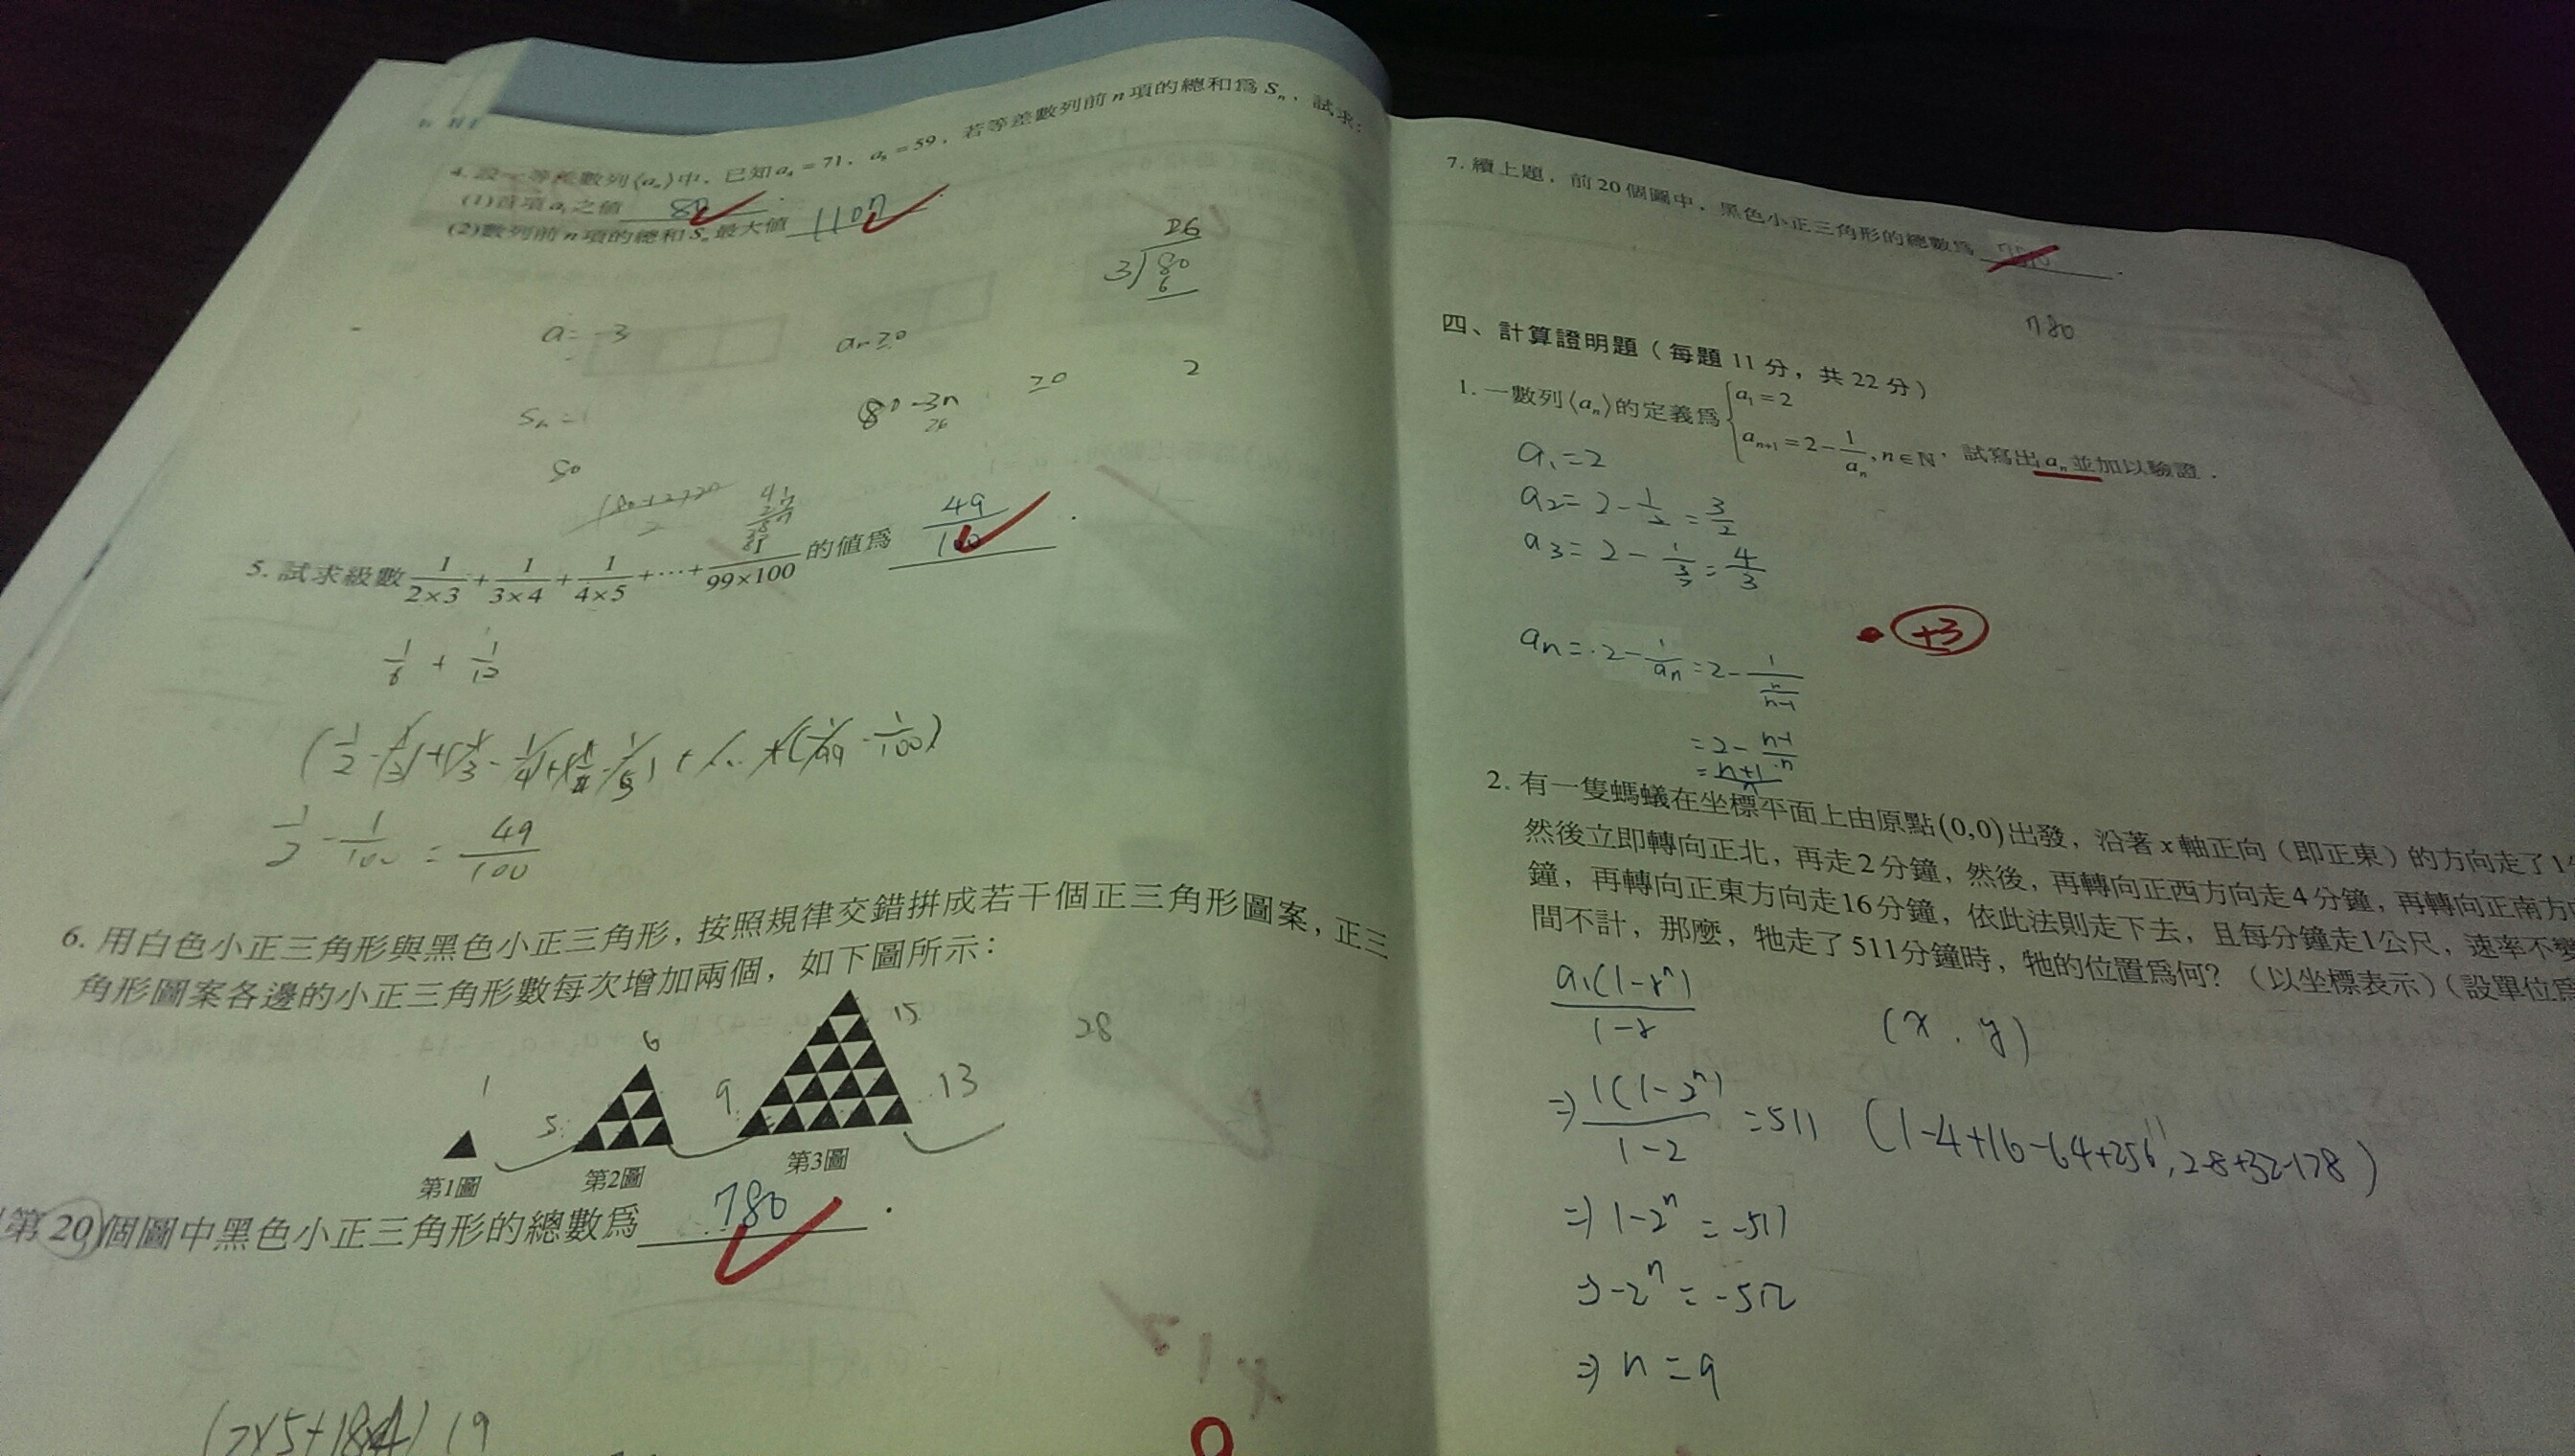 4. 設一等差數列⟨aₙ⟩中，已知a₄ = 71，a₈ = 59，若等差數列前n項的總和為Sₙ，試求：
(1)首項a₁之值 80
(2)數列前n項的總和Sₙ最大值 1107
26
3)80
6
a = -3
aₙ≥0
80-3n
26
≥0
2
80
5. 試求級數 1/(2×3) + 1/(3×4) + 1/(4×5) + ⋯ + 1/(99×100) 的值為 49/100 .
1/6 + 1/12
(1/2 - 1/3) + (1/3 - 1/4) + (1/4 - 1/5) + ... + (1/99 - 1/100)
1/2 - 1/100 = 49/100
6. 用白色小正三角形與黑色小正三角形，按照規律交錯拼成若干個正三角形圖案，正三
角形圖案各邊的小正三角形數每次增加兩個，如下圖所示：
1 6 15 28
5 9 13
第1圖 第2圖 第3圖
第20個圖中黑色小正三角形的總數為 780 .
(2×5+18×4) 19
7. 續上題，前20個圖中，黑色小正三角形的總數為 .
780
四、計算證明題（每題11分，共22分）
1. 一數列⟨aₙ⟩的定義為 { a₁ = 2
aₙ₊₁ = 2 - 1/aₙ , n∈ℕ ，試寫出aₙ並加以驗證．
a₁ = 2
a₂ = 2 - 1/2 = 3/2
a₃ = 2 - 1/(3/2) = 4/3
+3
aₙ = 2 - 1/aₙ = 2 - 1/(n/(n-1))
= 2 - (n-1)/n
= (n+1)/n
2. 有一隻螞蟻在坐標平面上由原點(0,0)出發，沿著x軸正向（即正東）的方向走了1
然後立即轉向正北，再走2分鐘，然後，再轉向正西方向走4分鐘，再轉向正南方
鐘，再轉向正東方向走16分鐘，依此法則走下去，且每分鐘走1公尺，速率不變
間不計，那麼，牠走了511分鐘時，牠的位置為何？（以坐標表示）（設單位為
a₁(1-rⁿ)/(1-r)
(x , y)
⇒ 1(1-2ⁿ)/(1-2) = 511
(1-4+16-64+256, 2-8+32-128)
⇒ 1-2ⁿ = -511
⇒ -2ⁿ = -512
⇒ n = 9